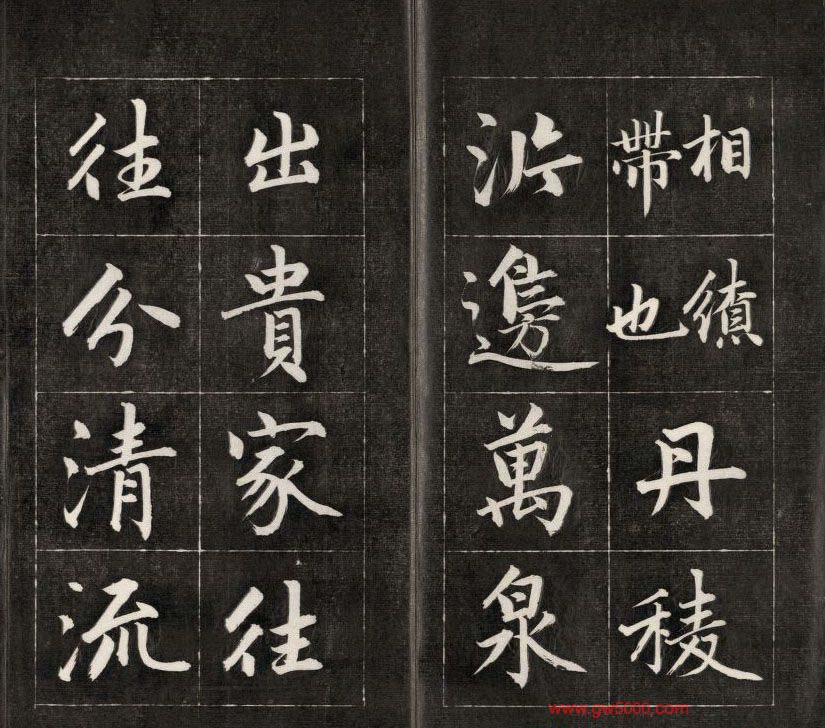 相
帶也
丹稜
沜邊萬泉
出貴家往
往分清流
www.gw5000.com